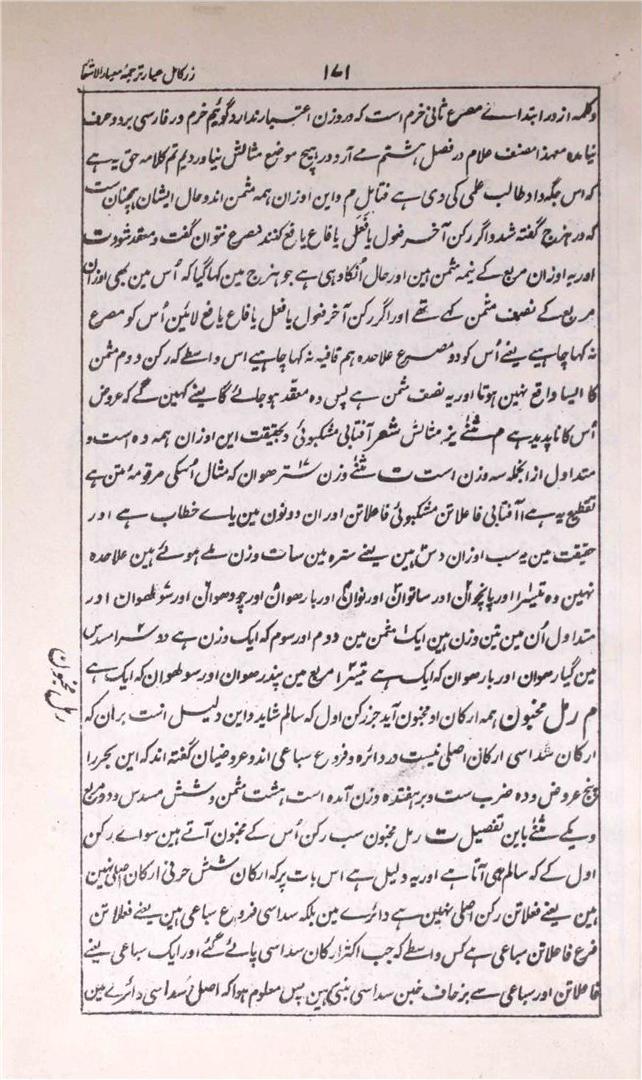 ۱۷۱
زر کامل عیار ترجمۂ معیار الاشعار
وکلمہ از در ابتداے مصرع ثانی خرم است کہ در وزن اعتبار ندارد گوئیم خرم در فارسی بر دو حرف
نیامدہ معہذا مصنف علام در فصل ہشتم مے آرد در ہیچ موضع مثالش نیاوردیم تم کلامہ حق یہ ہے
کہ اس جگہ داد طالب علمی کی دی ہے فتامل م واین اوزان ہمہ مثمن اند وحال ایشان ہمچنان ست
کہ در ہزج گفتہ شد واگر رکن آخر فعول یا فعل یا فاع یا فع کنند مصرع نتوان گفت ومعقد شود ت
اور یہ اوزان مربع کے نیمہ مثمن ہین اور حال انکا وہی ہے جو ہزج مین کہا گیا کہ اُس مین بھی اوزان
مربع کے نصف مثمن کے تھے اور اگر رکن آخر فعول یا فعل یا فاع یا فع لائین اُس کو مصرع
نہ کہا چاہیے یعنے اُس کو دو مصرع علاحدہ ہم قافیہ نہ کہا چاہیے اس واسطے کہ رکن دوم مثمن
کا ایسا واقع نہین ہوتا اور یہ نصف مثمن ہے پس وہ معقد ہو جائے گا یعنے کہین گے کہ عروض
اُس کا ناپدید ہے م مثنے یز مثالش شعر آفتابی مشکبوئی و بحقیقت این اوزان ہمہ دہ است و
متداول از انجملہ سہ وزن است ت مثنے وزن سترھوان کہ مثال اُسکی مرقومۂ متن ہے
تقطیع یہ ہے آفتابی فاعلاتن مشکبوئی فاعلاتن اور ان دونون مین یاے خطاب ہے اور
حقیقت مین یہ سب اوزان دس ہین یعنے سترہ مین سات وزن ملے ہوئے ہین علاحدہ
نہین وہ تیسرا اور پانچوان اور ساتوان اور نوان اور بارھوان اور چودھوان اور سولھوان اور
متداول اُن مین تین وزن ہین ایک مثمن مین دوم اور سوم کہ ایک وزن ہے دوسرا مسدس
مین گیارھوان اور بارھوان کہ ایک ہے تیسرا مربع مین پندرھوان اور سولھوان کہ ایک ہے
م رمل مخبون ہمہ ارکان او مخبون آید جز رکن اول کہ سالم شاید واین دلیل است بر ان کہ
ارکان سداسی ارکان اصلی نیست در دائرہ وفروع سباعی اند وعروضیان گفتہ اند کہ این بحر را
پنج عروض ودہ ضرب ست وبر ہفتدہ وزن آمدہ است ہشت مثمن وشش مسدس ودو مربع
ویکے مثنے باین تفصیل ت رمل مخبون سب رکن اُس کے مخبون آتے ہین سواے رکن
اول کے کہ سالم ہی آتا ہے اور یہ دلیل ہے اس بات پر کہ ارکان شش حرفی ارکان اصلی نہین
ہین یعنے فعلاتن رکن اصلی نہین ہے دائرے مین بلکہ سداسی فروع سباعی ہین یعنے فعلاتن
فرع فاعلاتن سباعی ہے کس واسطے کہ جب اکثر ارکان سداسی پائے گئے اور ایک سباعی یعنے
فاعلاتن اور سباعی سے بزحاف خبن سداسی بنتی ہین پس معلوم ہوا کہ اصل سداسی دائرے مین
رمل مخبون